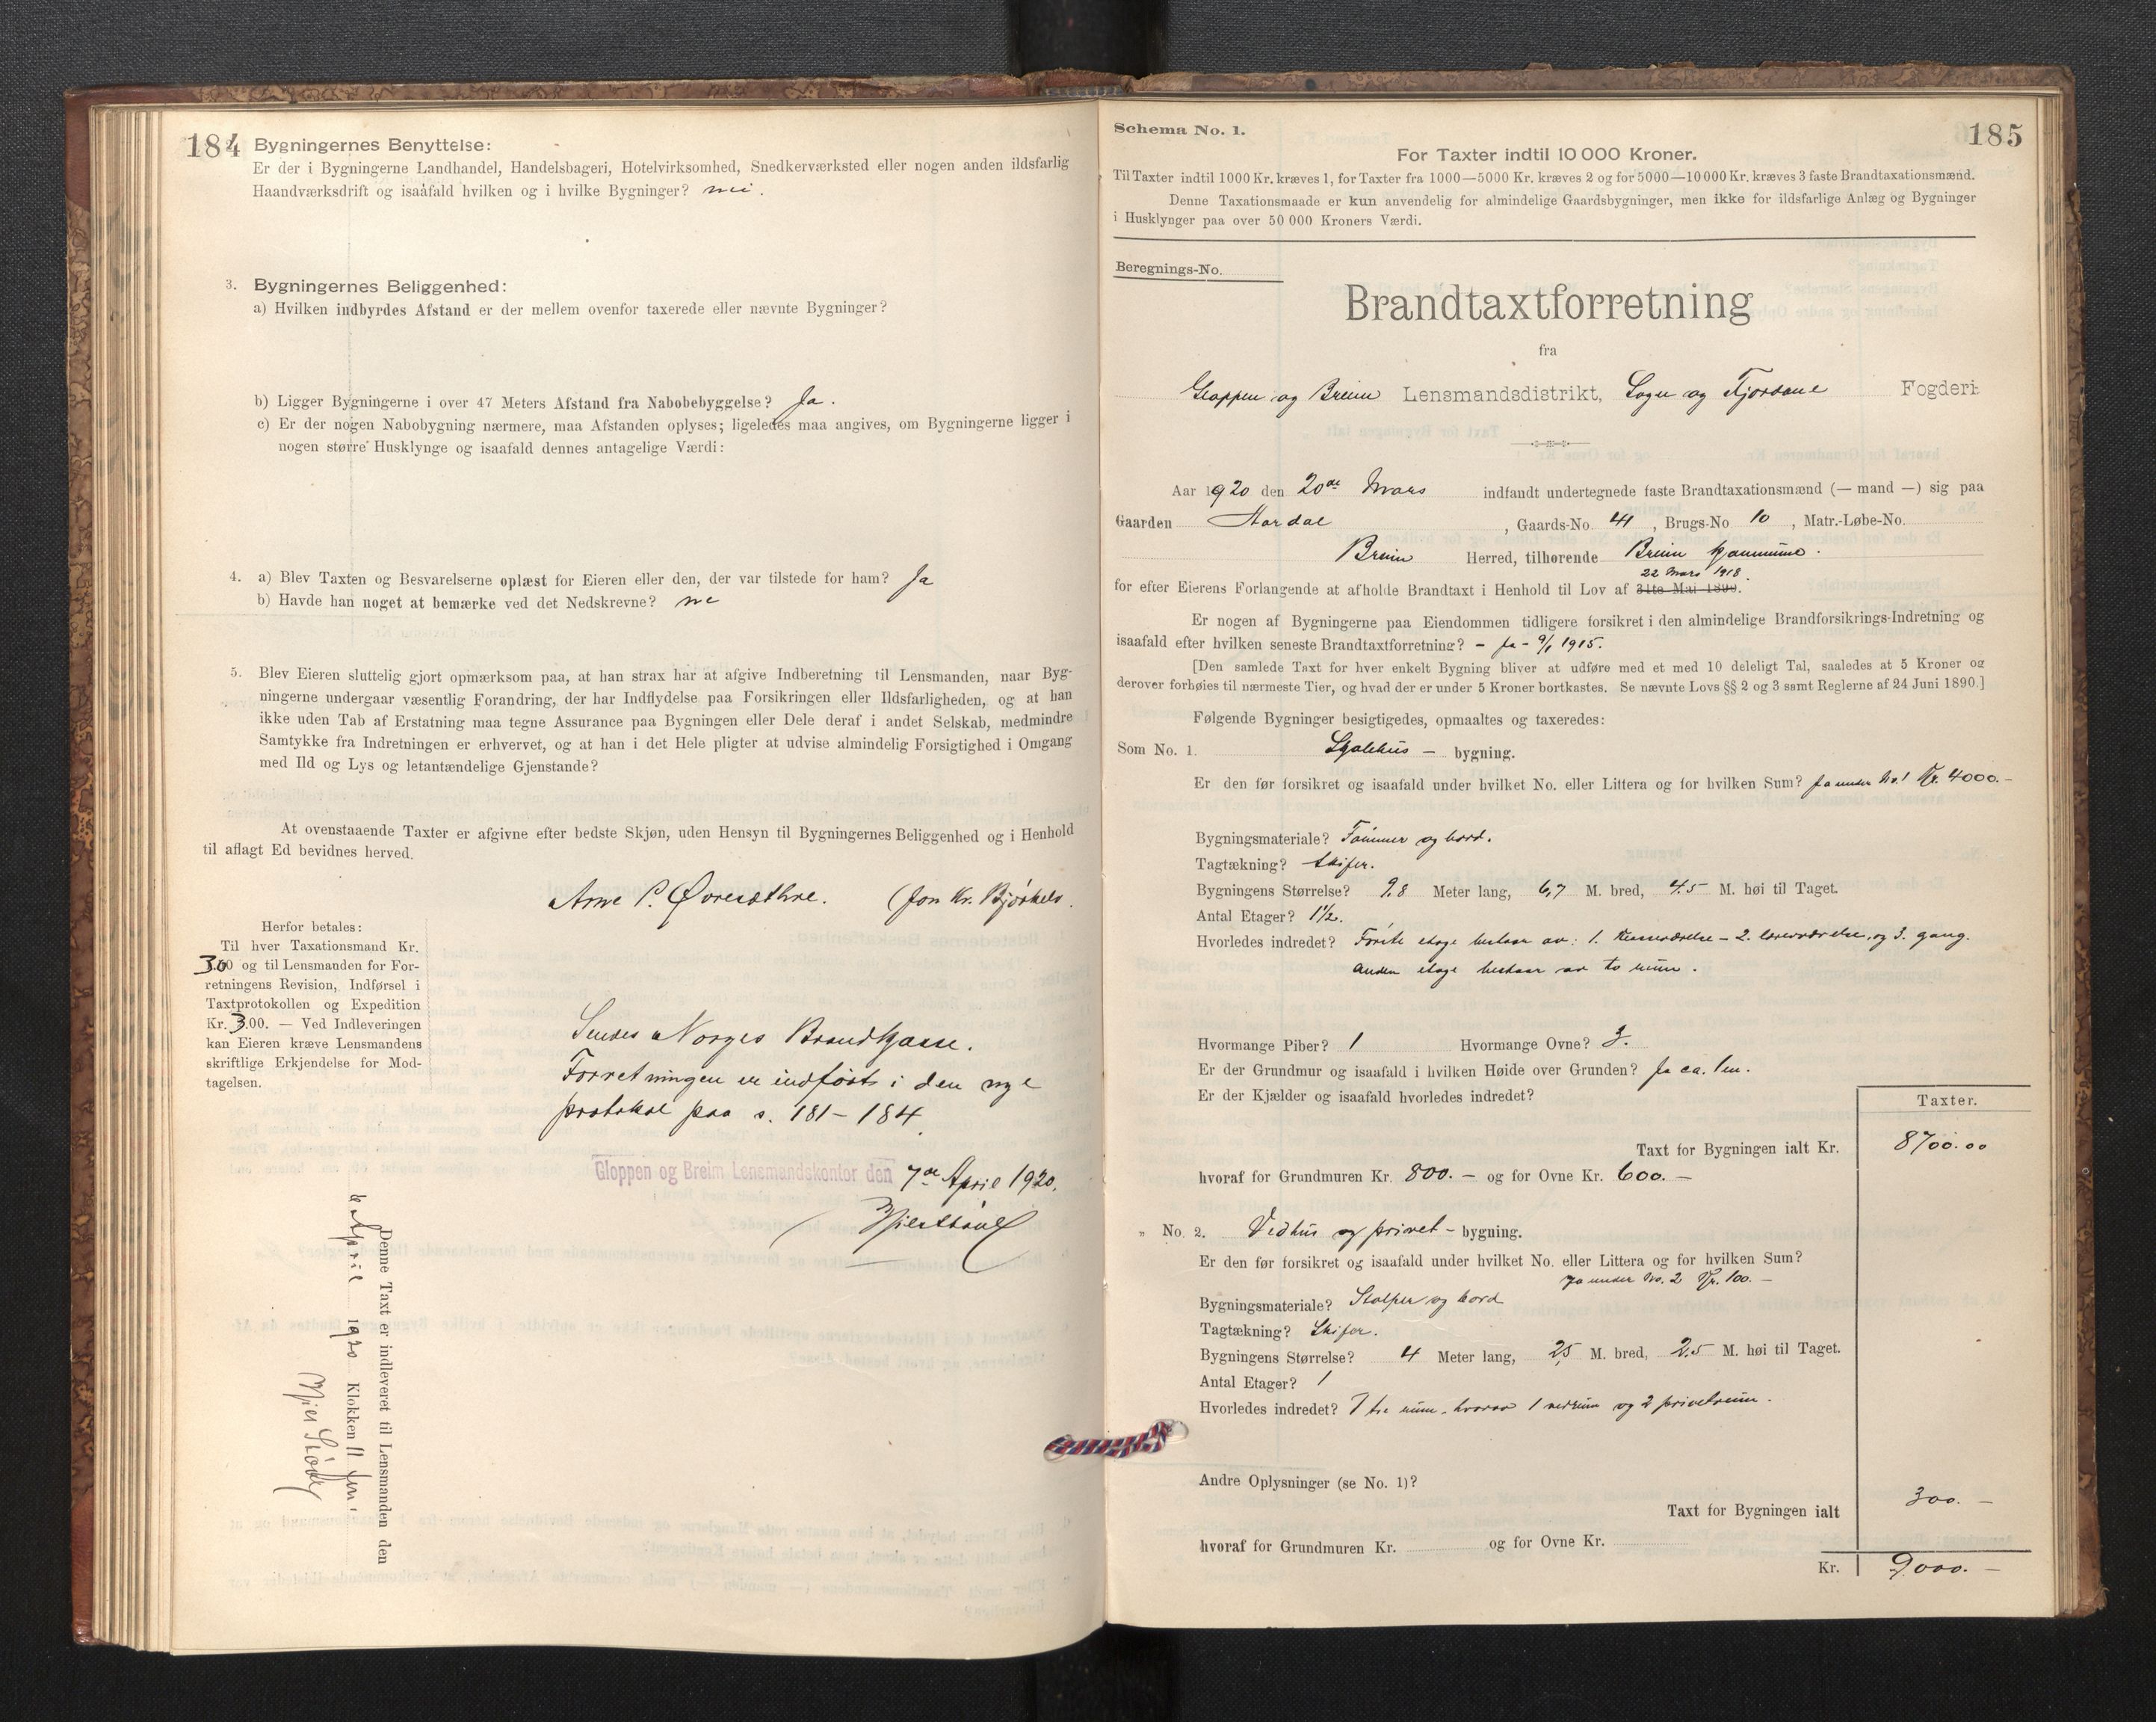 184
Bygningernes Benyttelse:
Er der i Bygningerne Landhandel, Handelsbageri, Hotelvirksomhed, Snedkerværksted eller nogen anden ildsfarlig
Haandværksdrift og isaafald hvilken og i hvilke Bygninger? nei.
3. Bygningernes Beliggenhed:
a) Hvilken indbyrdes Afstand er der mellem ovenfor taxerede eller nævnte Bygninger?
b) Ligger Bygningerne i over 47 Meters Afstand fra Nabobebyggelse? Ja.
c) Er der nogen Nabobygning nærmere, maa Afstanden oplyses; ligeledes maa angives, om Bygningerne ligger i
nogen større Husklynge og isaafald dennes antagelige Værdi:
4. a) Blev Taxten og Besvarelserne oplæst for Eieren eller den, der var tilstede for ham? Ja
b) Havde han noget at bemærke ved det Nedskrevne? ne
5. Blev Eieren sluttelig gjort opmærksom paa, at han strax har at afgive Indberetning til Lensmanden, naar Byg-
ningerne undergaar væsentlig Forandring, der har Indflydelse paa Forsikringen eller Ildsfarligheden, og at han
ikke uden Tab af Erstatning maa tegne Assurance paa Bygningen eller Dele deraf i andet Selskab, medmindre
Samtykke fra Indretningen er erhvervet, og at han i det Hele pligter at udvise almindelig Forsigtighed i Omgang
med Ild og Lys og letantændelige Gjenstande?
At ovenstaaende Taxter er afgivne efter bedste Skjøn, uden Hensyn til Bygningernes Beliggenhed og i Henhold
til aflagt Ed bevidnes herved.
Arne P. Øvresæthre. Jon Kr. Bjørkelo.
Herfor betales:
Til hver Taxationsmand Kr.
3.00 og til Lensmanden for For-
retningens Revision, Indførsel i
Taxtprotokollen og Expedition
Kr. 3.00. — Ved Indleveringen
kan Eieren kræve Lensmandens
skriftlige Erkjendelse for Mod-
tagelsen.
Sendes Norges Brandkasse.
Forretningen er indført i den nye
protokol paa s. 181-184.
Gloppen og Breim Lensmandskontor den 7de April 1920.
Denne Taxt er indleveret til Lensmanden den
6 April 1920 Klokken 11 fm.
Schema No. 1.
185
For Taxter indtil 10 000 Kroner.
Til Taxter indtil 1000 Kr. kræves 1, for Taxter fra 1000—5000 Kr. kræves 2 og for 5000—10 000 Kr. kræves 3 faste Brandtaxationsmænd.
Denne Taxationsmaade er kun anvendelig for almindelige Gaardsbygninger, men ikke for ildsfarlige Anlæg og Bygninger
i Husklynger paa over 50 000 Kroners Værdi.
Beregnings-No.
Brandtaxtforretning
fra
Gloppen og Breim Lensmandsdistrikt, Sogn og Fjordane Fogderi.
Aar 1920 den 20de Mars indfandt undertegnede faste Brandtaxationsmænd (— mand —) sig paa
Gaarden Aardal, Gaards-No. 41, Brugs-No. 10, Matr.-Løbe-No.
Breim Herred, tilhørende Breim kommune.
22 Mars 1918.
for efter Eierens Forlangende at afholde Brandtaxt i Henhold til Lov af 31te Mai 1890.
Er nogen af Bygningerne paa Eiendommen tidligere forsikret i den almindelige Brandforsikrings-Indretning og
isaafald efter hvilken seneste Brandtaxtforretning? - Ja - 9/1 1915.
[Den samlede Taxt for hver enkelt Bygning bliver at udføre med et med 10 deleligt Tal, saaledes at 5 Kroner og
derover forhøies til nærmeste Tier, og hvad der er under 5 Kroner bortkastes. Se nævnte Lovs §§ 2 og 3 samt Reglerne af 24 Juni 1890.]
Følgende Bygninger besigtigedes, opmaaltes og taxeredes:
Som No. 1. Skolehus - bygning.
Er den før forsikret og isaafald under hvilket No. eller Littera og for hvilken Sum? Ja under No. 1 Kr. 4000.-
Bygningsmateriale? Tømmer og bord.
Tagtækning? Skifer.
Bygningens Størrelse? 9,8 Meter lang, 6,7 M. bred, 4.5 M. høi til Taget.
Antal Etager? 1½.
Hvorledes indredet? Første etage bestaar av: 1. klasseværelse - 2. læreværelse, og 3. gang.
Anden etage bestaar av to rum.
Hvormange Piber? 1 Hvormange Ovne? 3.
Er der Grundmur og isaafald i hvilken Høide over Grunden? Ja ca. 1 m.
Er der Kjælder og isaafald hvorledes indredet?
Taxter.
Taxt for Bygningen ialt Kr. 8700.00
hvoraf for Grundmuren Kr. 800.- og for Ovne Kr. 600.-
„ No. 2. Vedhus og privet - bygning.
Er den før forsikret og isaafald under hvilket No. eller Littera og for hvilken Sum?
Ja under No. 2 Kr. 100.-
Bygningsmateriale? Stolper og bord
Tagtækning? Skifer.
Bygningens Størrelse? 4 Meter lang, 2,5 M. bred, 2.5 M. høi til Taget.
Antal Etager? 1
Hvorledes indredet? I tre rum, hvorav 1 vedrum og 2 privetrum.
Andre Oplysninger (se No. 1)?
Taxt for Bygningen ialt 300.-
hvoraf for Grundmuren Kr. og for Ovne Kr.
Kr. 9000.-